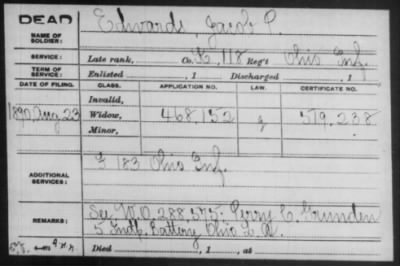 DEAD
NAME OF SOLDIER:
Edwards, Jacob P.
SERVICE:
Late rank, Co. K, 118 Reg't Ohio Inf.
TERM OF SERVICE:
Enlisted , 1 Discharged , 1
DATE OF FILING. CLASS. APPLICATION NO. LAW. CERTIFICATE NO.
Invalid,
1890, Aug. 23 Widow, 468,152 579.238
Minor,
ADDITIONAL SERVICES:
F 183 Ohio Inf.
REMARKS:
See W.O. 288,575- Perry C.
5 Indp. Battery Ohio L.A.
Died , 1 , at